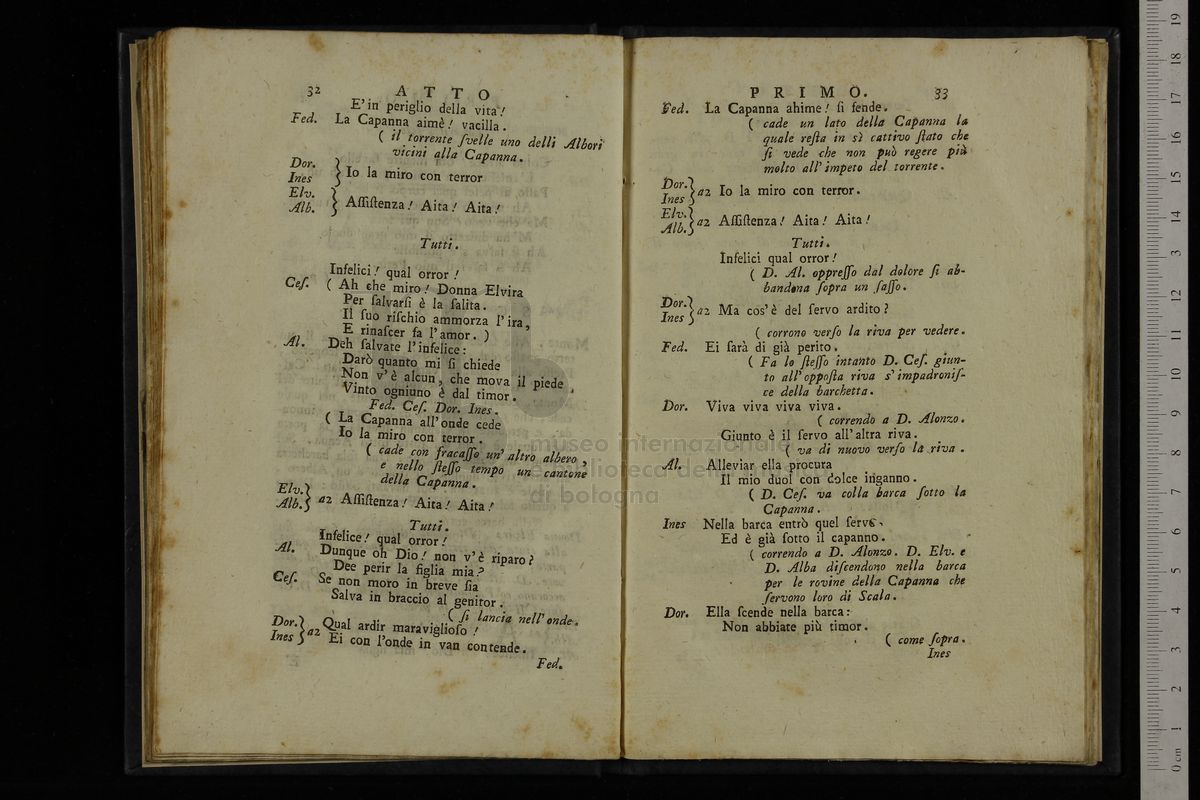 32 ATTO
E' in periglio della vita!
Fed. La Capanna aimè! vacilla.
( il torrente ſvelle uno delli Albori
vicini alla Capanna.
Dor.
Ines } Io la miro con terror
Elv.
Alb. } Aſſiſtenza! Aita! Aita!
Tutti.
Infelici! qual orror!
Ceſ. ( Ah che miro! Donna Elvira
Per ſalvarſi è la ſalita.
Il ſuo riſchio ammorza l'ira,
E rinaſcer fa l'amor. )
Al. Deh ſalvate l'infelice:
Darò quanto mi ſi chiede
Non v'è alcun, che mova il piede,
Vinto ogniuno è dal timor.
Fed. Ceſ. Dor. Ines.
( La Capanna all'onde cede
Io la miro con terror.
( cade con fracaſſo un' altro albero,
e nello ſteſſo tempo un cantone
della Capanna.
Elv.
Alb. } a2 Aſſiſtenza! Aita! Aita!
Tutti.
Infelice! qual orror!
Al. Dunque oh Dio! non v'è riparo?
Dee perir la figlia mia?
Ceſ. Se non moro in breve ſia
Salva in braccio al genitor.
( ſi lancia nell' onde.
Dor.
Ines } a2 Qual ardir maraviglioſo!
Ei con l'onde in van contende.
Fed.
PRIMO. 33
Fed. La Capanna ahime! ſi fende.
( cade un lato della Capanna la
quale reſta in sì cattivo ſtato che
ſi vede che non può regere più
molto all' impeto del torrente.
Dor.
Ines } a2 Io la miro con terror.
Elv.
Alb. } a2 Aſſiſtenza! Aita! Aita!
Tutti.
Infelici qual orror!
( D. Al. oppreſſo dal dolore ſi ab-
bandona ſopra un ſaſſo.
Dor.
Ines } a2 Ma cos'è del ſervo ardito?
( corrono verſo la riva per vedere.
Fed. Ei ſarà di già perito.
( Fa lo ſteſſo intanto D. Ceſ. giun-
to all' oppoſta riva s' impadroniſ-
ce della barchetta.
Dor. Viva viva viva viva.
( correndo a D. Alonzo.
Giunto è il ſervo all' altra riva.
( va di nuovo verſo la riva.
Al. Alleviar ella procura
Il mio duol con dolce inganno.
( D. Ceſ. va colla barca ſotto la
Capanna.
Ines Nella barca entrò quel ſervo,
Ed è già ſotto il capanno.
( correndo a D. Alonzo. D. Elv. e
D. Alba diſcendono nella barca
per le rovine della Capanna che
ſervono loro di Scala.
Dor. Ella ſcende nella barca:
Non abbiate più timor.
( come ſopra.
Ines
museo internazionale
e biblioteca della musica
di bologna
0 cm 1 2 3 4 5 6 7 8 9 10 11 12 13 14 15 16 17 18 19